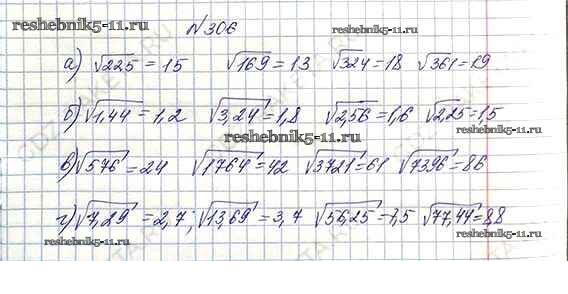 №306
reshebnik5-11.ru
reshebnik5-11.ru
а) √225 = 15 √169 = 13 √324 = 18 √361 = 19
б) √1,44 = 1,2 √3,24 = 1,8 √2,56 = 1,6 √2,25 = 1,5
reshebnik5-11.ru
reshebnik5-11.ru
в) √576 = 24 √1764 = 42 √3721 = 61 √7396 = 86
г) √7,29 = 2,7; √13,69 = 3,7 √56,25 = 7,5 √77,44 = 8,8
reshebnik5-11.ru
reshebnik5-11.ru